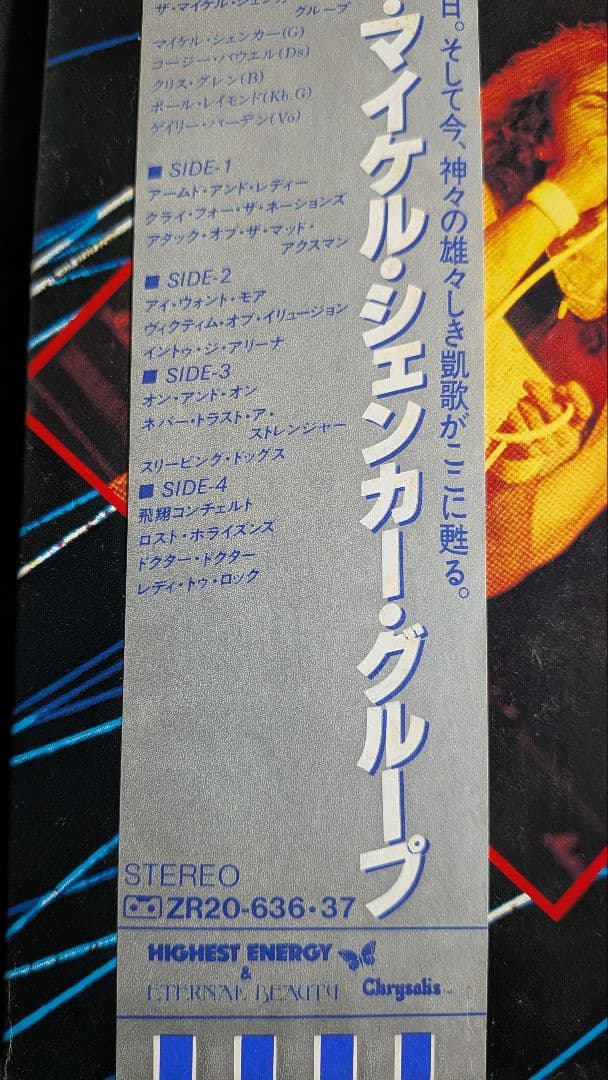 ザ・マイケル・シェンカー
グループ
マイケル・シェンカー(G)
コージー・パウエル(Ds)
クリス・グレン(B)
ポール・レイモンド(Kb.G)
ゲイリー・バーデン(Vo)
■ SIDE-1
アームド・アンド・レディー
クライ・フォー・ザ・ネーションズ
アタック・オブ・ザ・マッド・
アクスマン
■ SIDE-2
アイ・ウォント・モア
ヴィクティム・オブ・イリュージョン
イントゥ・ジ・アリーナ
■ SIDE-3
オン・アンド・オン
ネバー・トラスト・ア・
ストレンジャー
スリーピング・ドッグス
■ SIDE-4
飛翔コンチェルト
ロスト・ホライズンズ
ドクター・ドクター
レディ・トゥ・ロック
・マイケル・シェンカー・グループ
日。そして今、神々の雄々しき凱歌がここに甦る。
STEREO
ZR20-636・37
HIGHEST ENERGY
&
ETERNAL BEAUTY
Chrysalis